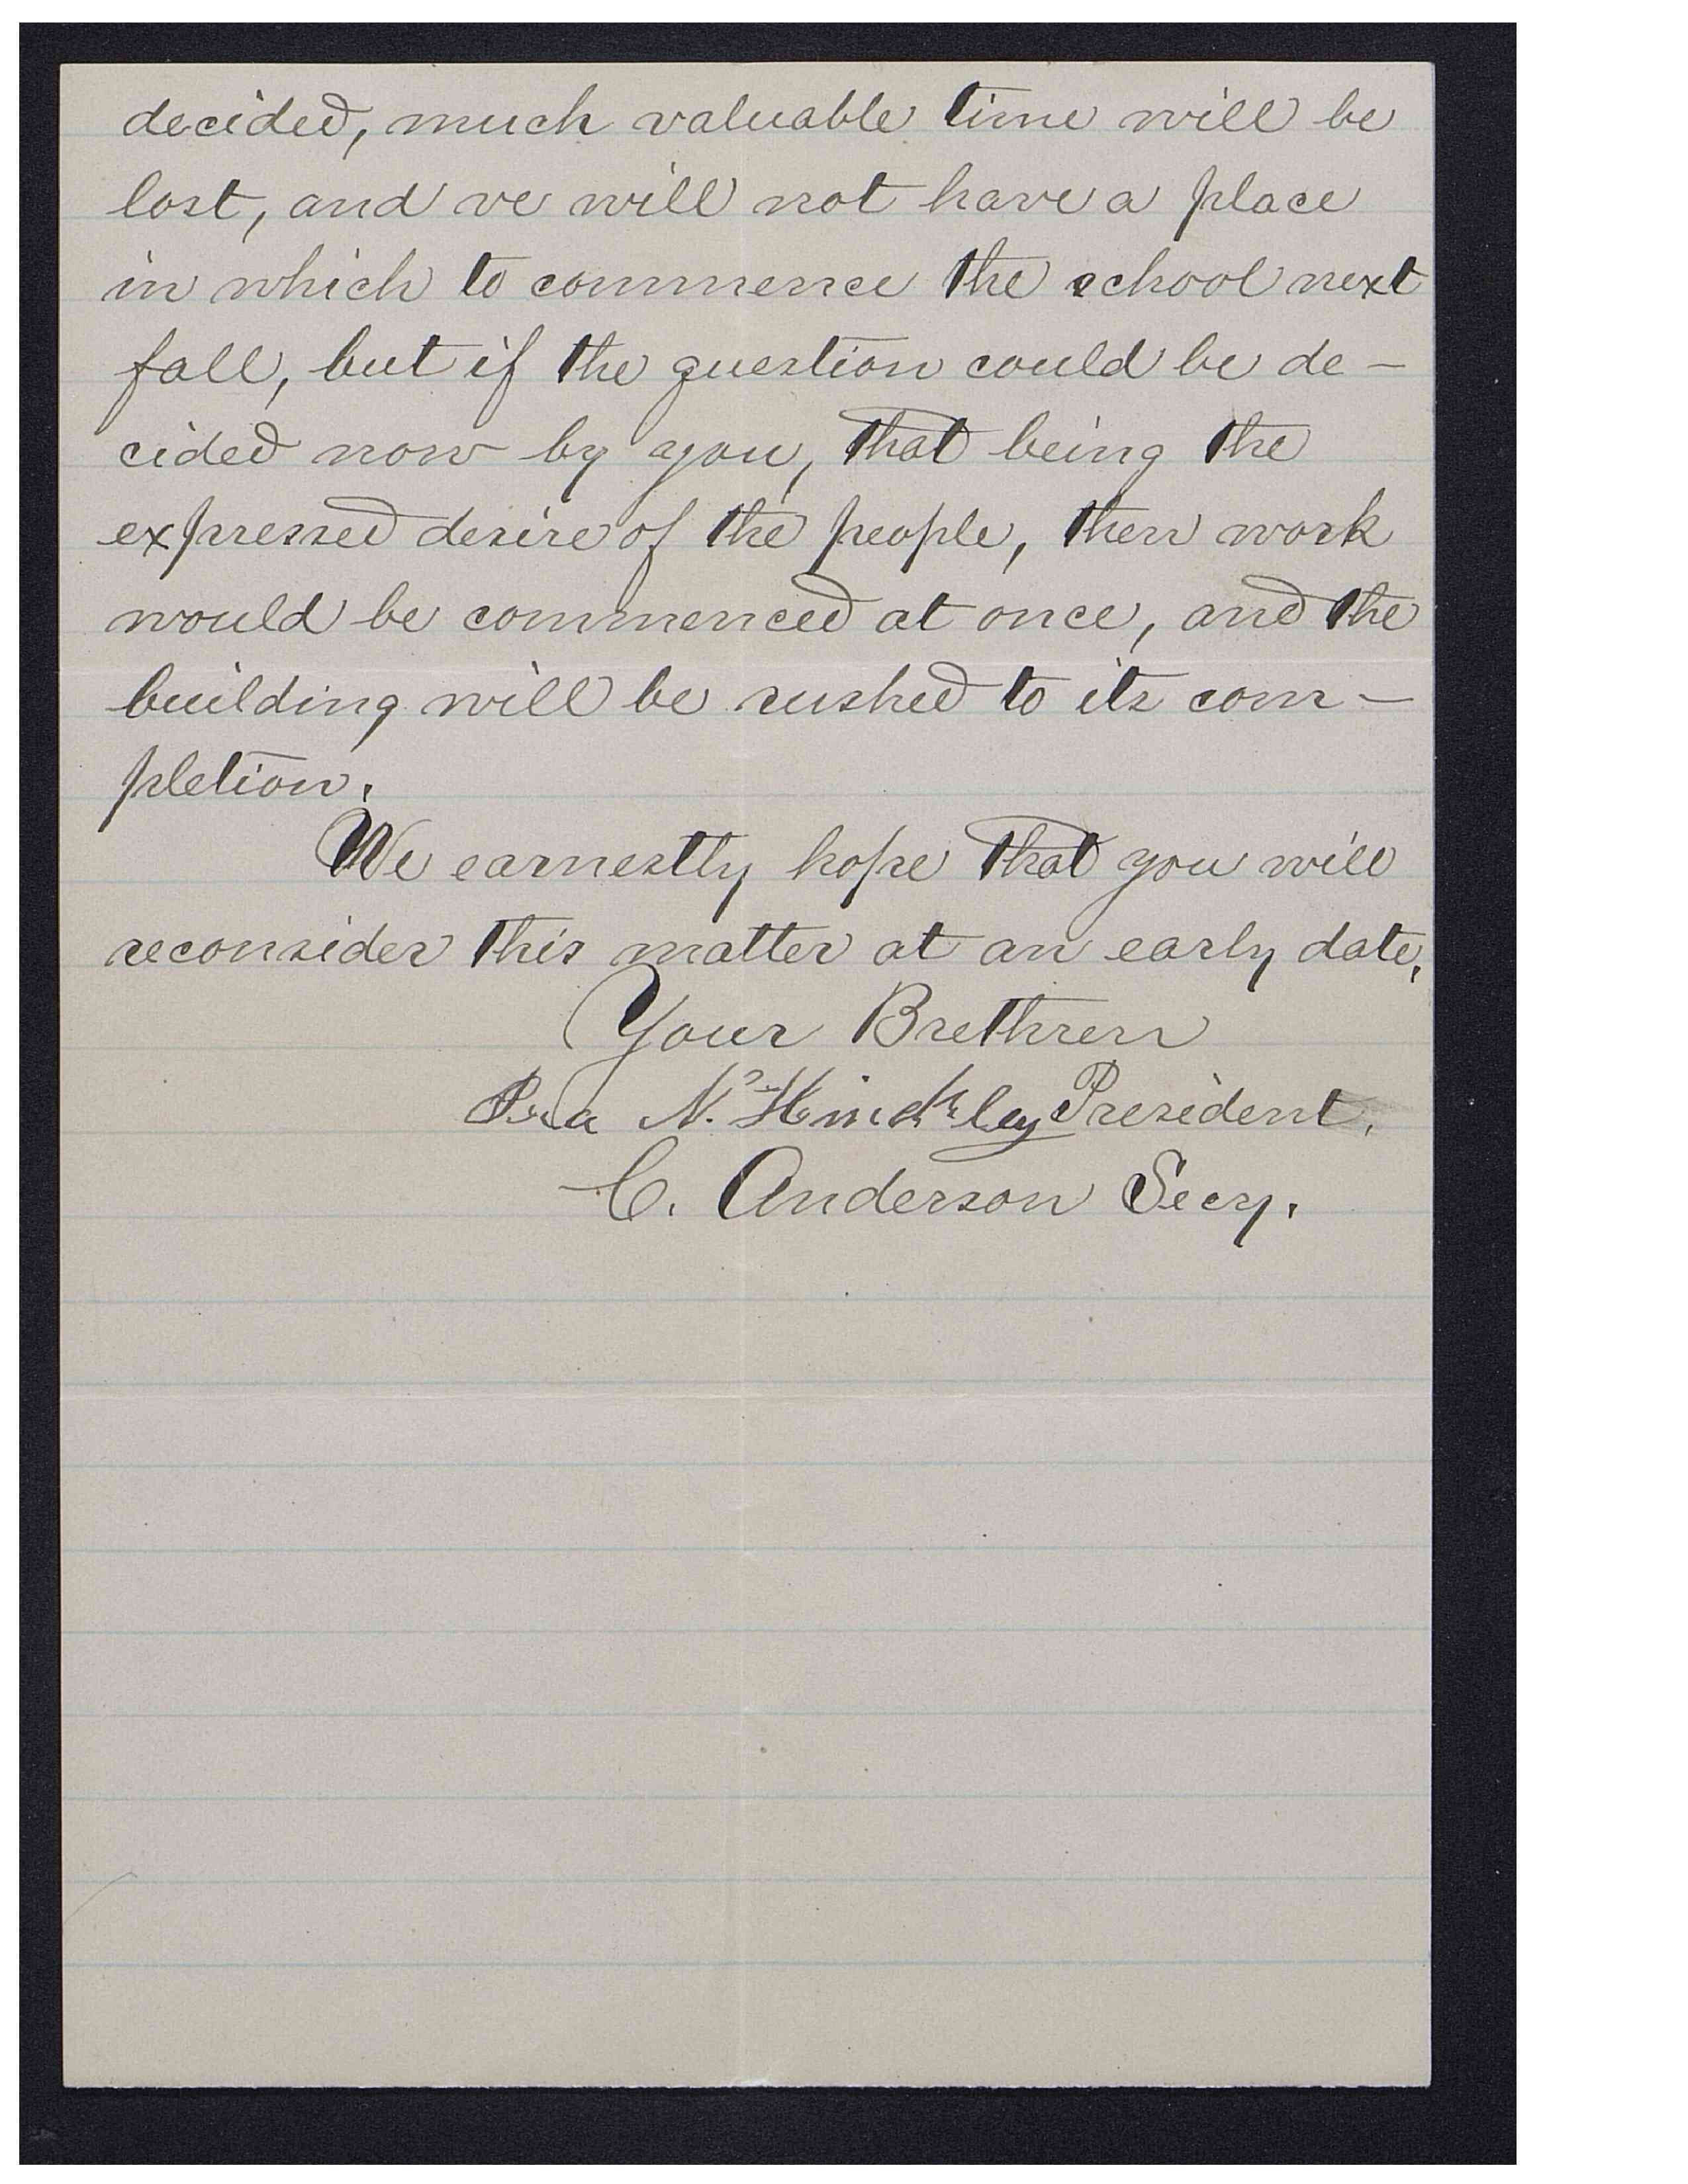 decided, much valuable time will be
lost, and we will not have a place
in which to commence the school next
fall, but if the question could be de-
cided now by you, that being the
expressed desire of the people, then work
would be commenced at once, and the
building will be rushed to its com-
pletion.
We earnestly hope that you will
reconsider this matter at an early date.
Your Brethren
Ira N. Hinckley President.
C. Anderson Secy.